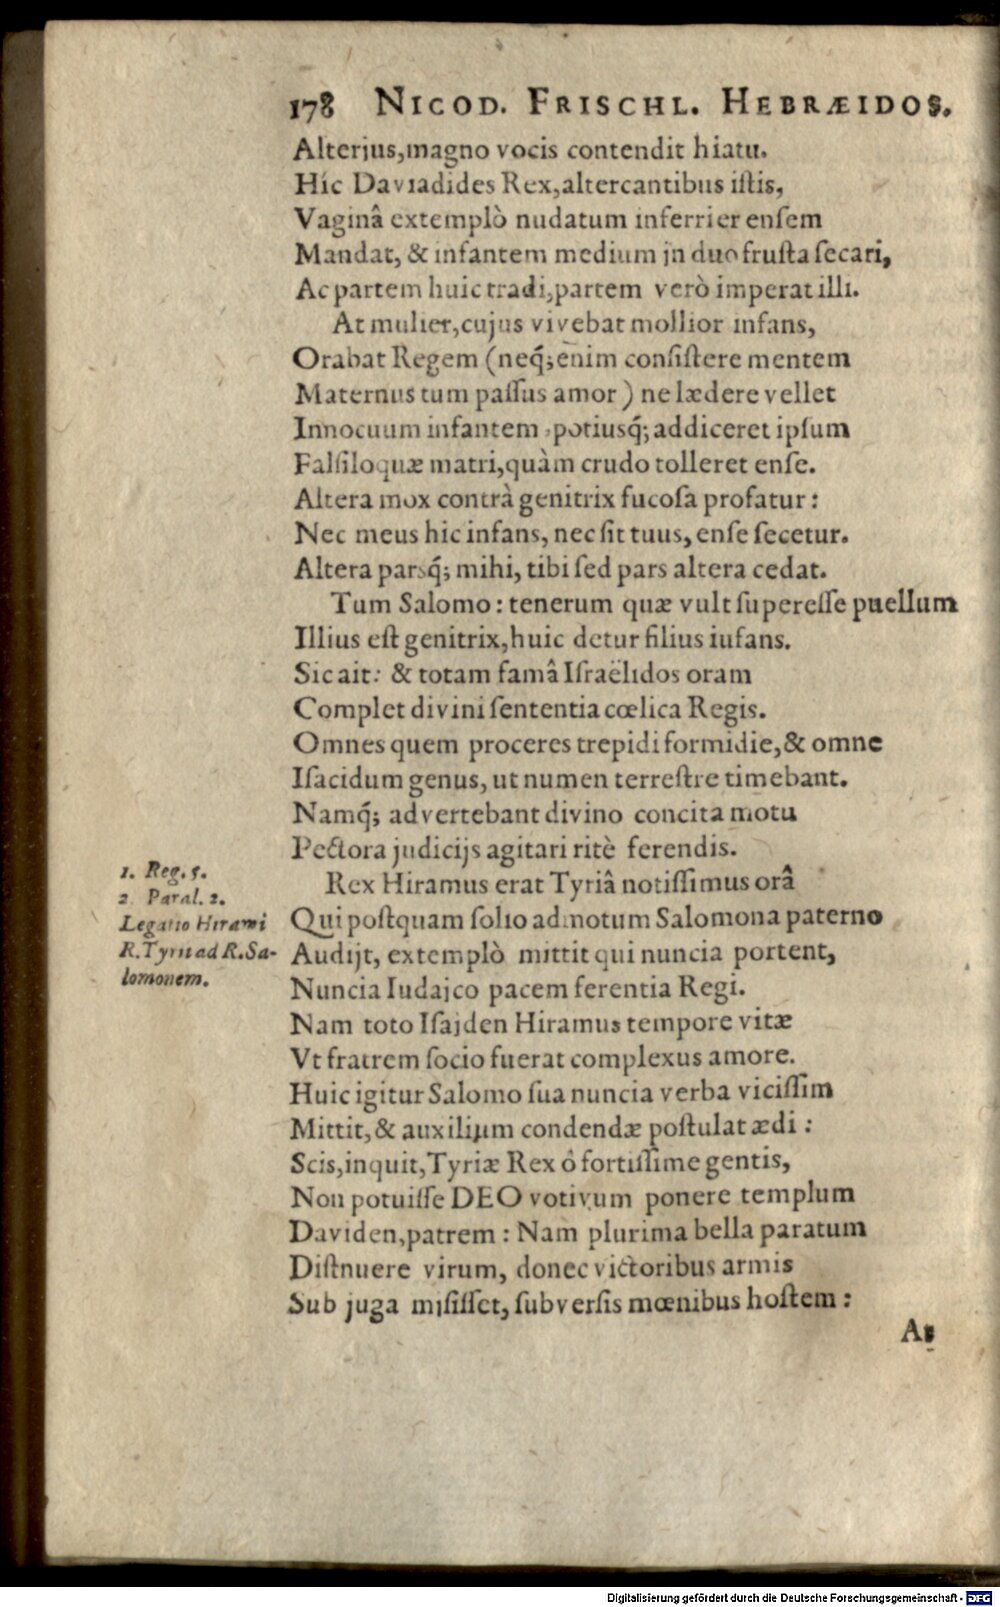 178 NICOD. FRISCHL. HEBRÆIDOS.
Alterjus, magno vocis contendit hiatu.
Hîc Daviadides Rex, altercantibus iſtis,
Vaginâ extemplò nudatum inferrier enſem
Mandat, & infantem medium in duo fruſta ſecari,
Ac partem huic tradi, partem verò imperat illi.
At mulier, cujus vivebat mollior infans,
Orabat Regem (neq́; enim conſiſtere mentem
Maternus tum paſſus amor) ne lædere vellet
Innocuum infantem, potiusq́; addiceret ipſum
Falſiloquæ matri, quàm crudo tolleret enſe.
Altera mox contrà genitrix fucoſa profatur:
Nec meus hic infans, nec ſit tuus, enſe ſecetur.
Altera parsq́; mihi, tibi ſed pars altera cedat.
Tum Salomo: tenerum quæ vult ſupereſſe puellum
Illius eſt genitrix, huic detur filius iufans.
Sic ait: & totam famâ Iſraëlidos oram
Complet divini ſententia cœlica Regis.
Omnes quem proceres trepidi formidie, & omne
Iſacidum genus, ut numen terreſtre timebant.
Namq́; advertebant divino concita motu
Pectora judicijs agitari ritè ferendis.
1. Reg. 5.
2 Paral. 2.
Legatio Hirami
R. Tyrii ad R. Sa-
lomonem.
Rex Hiramus erat Tyriâ notiſſimus orâ
Qui poſtquam ſolio admotum Salomona paterno
Audijt, extemplò mittit qui nuncia portent,
Nuncia Iudajco pacem ferentia Regi.
Nam toto Iſajden Hiramus tempore vitæ
Vt fratrem ſocio fuerat complexus amore.
Huic igitur Salomo ſua nuncia verba viciſſim
Mittit, & auxilijum condendæ poſtulat ædi:
Scis, inquit, Tyriæ Rex ô fortiſſime gentis,
Non potuiſſe DEO votivum ponere templum
Daviden, patrem: Nam plurima bella paratum
Diſtnuere virum, donec victoribus armis
Sub juga miſiſſet, ſubverſis mœnibus hoſtem:
At
Digitalisierung gefördert durch die Deutsche Forschungsgemeinschaft - DFG